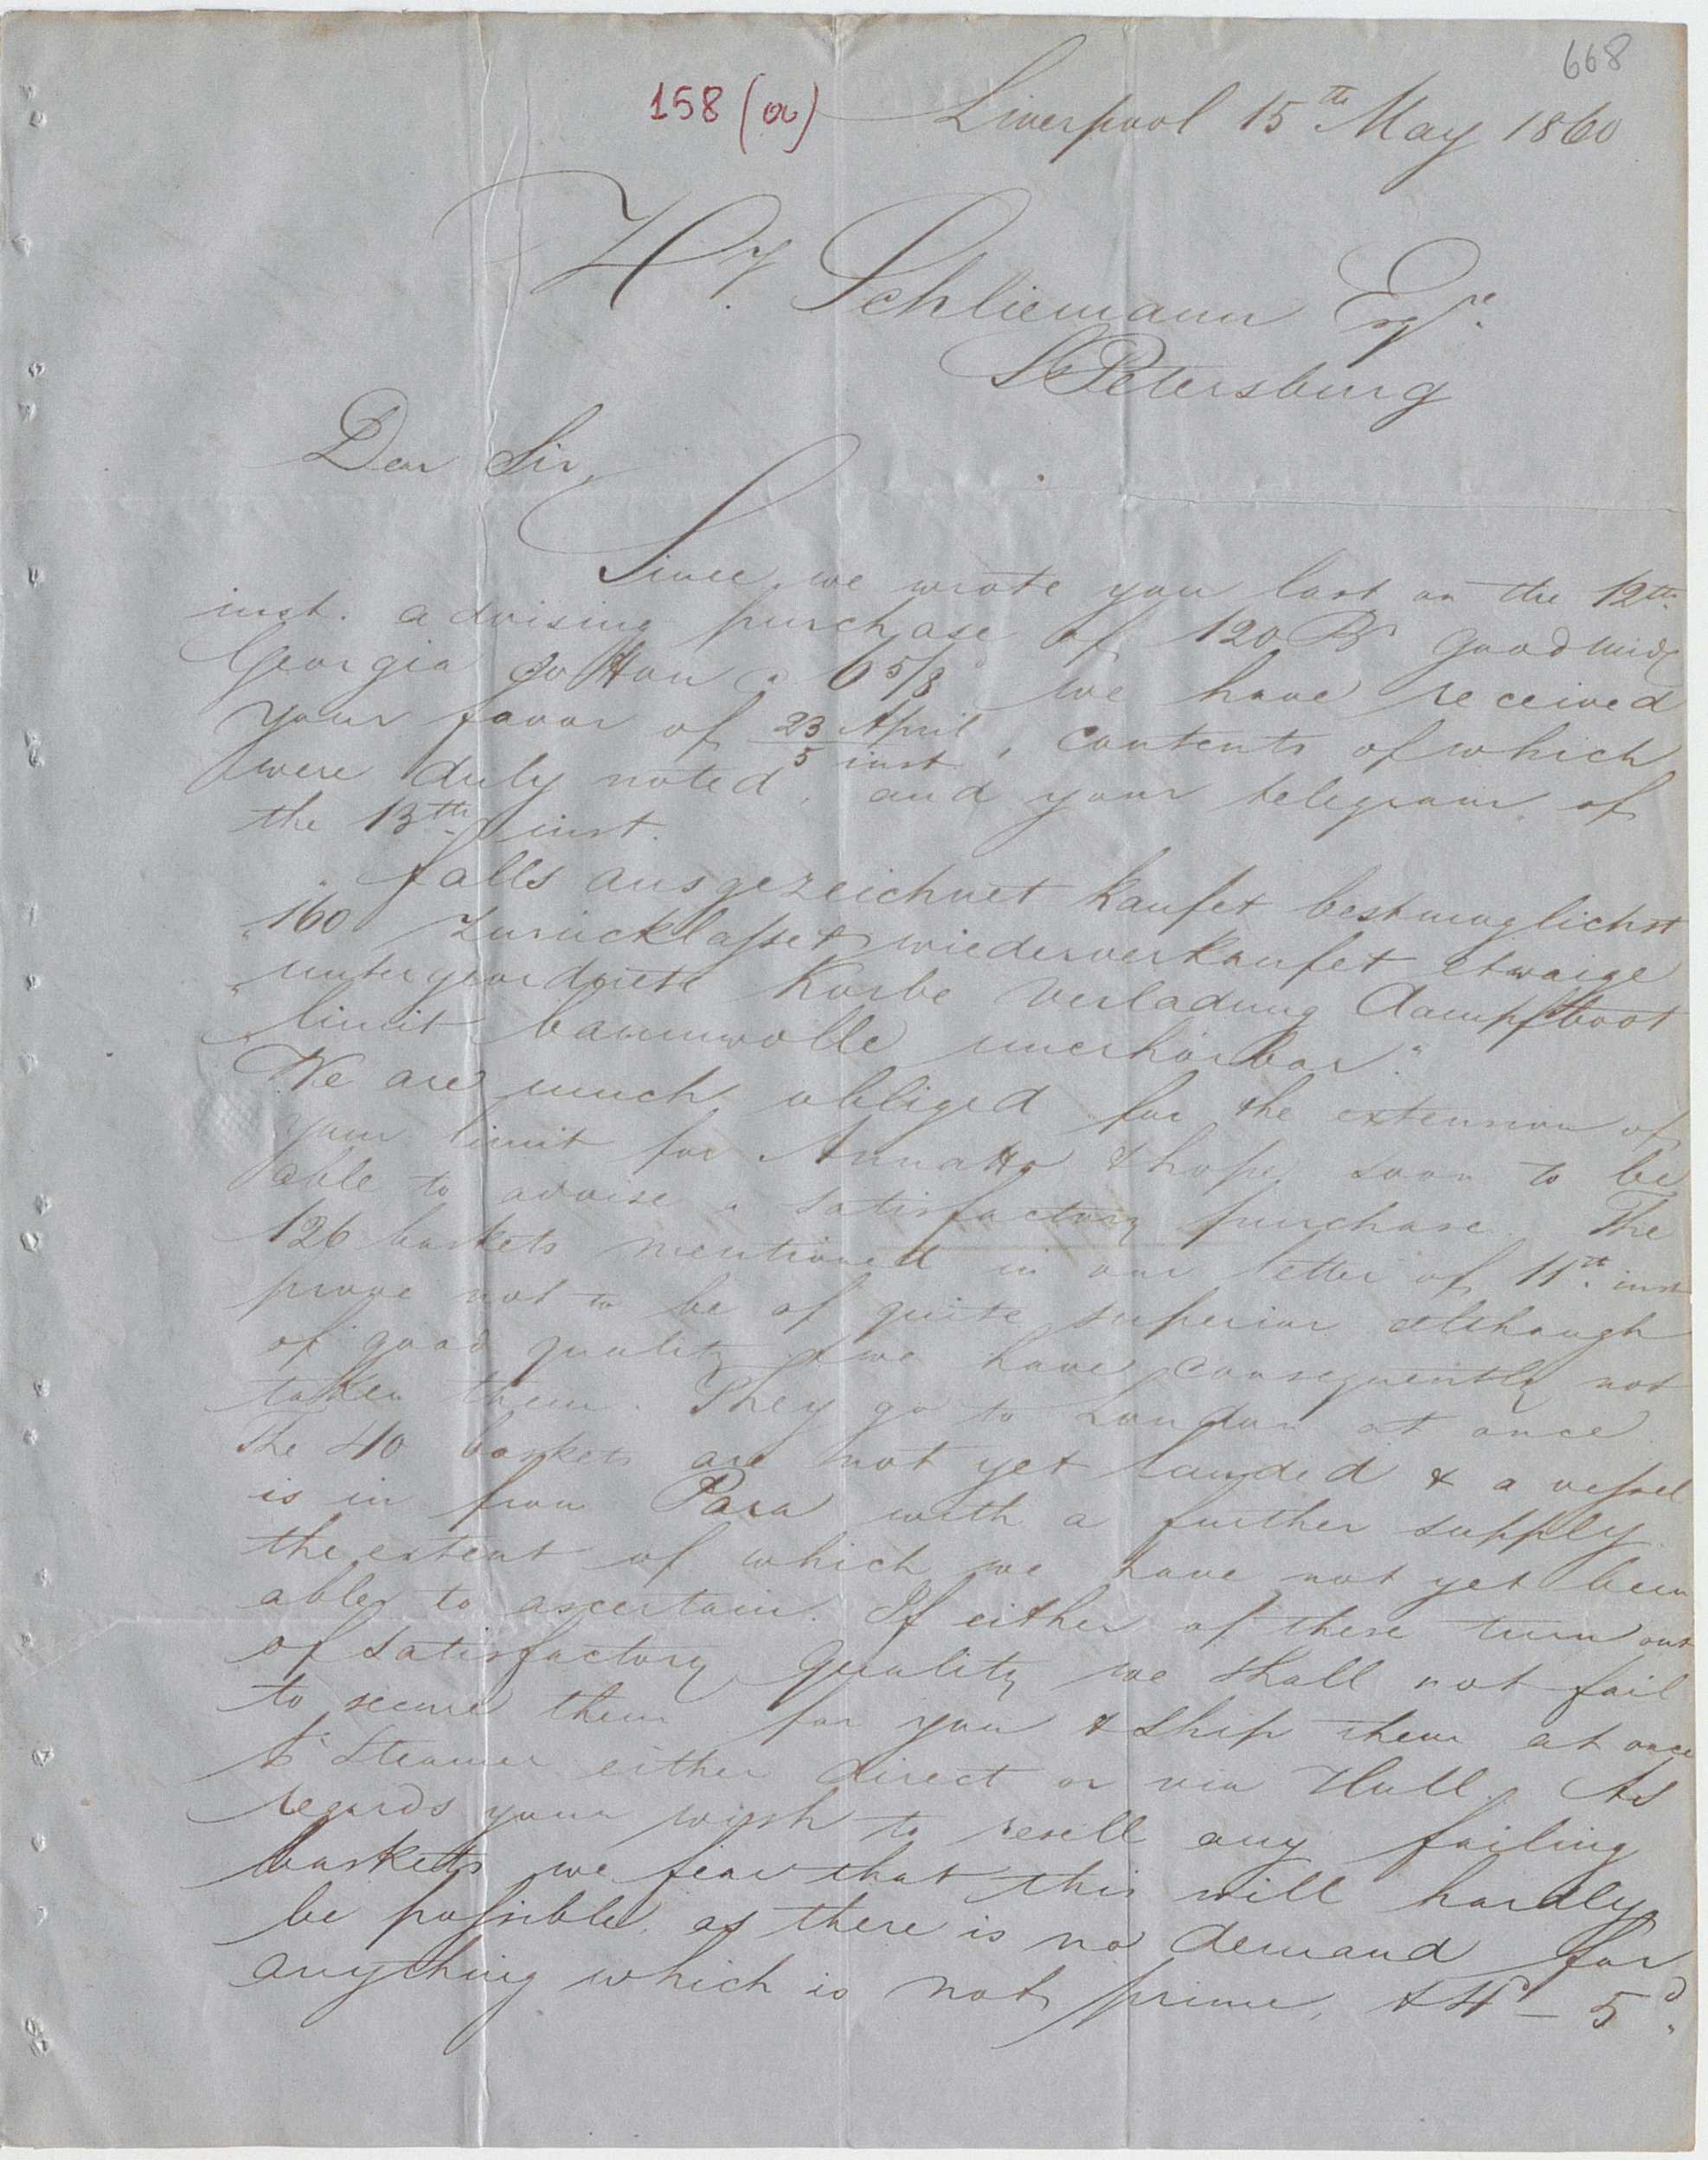 668
158 (a)
Liverpool 15th May 1860
Hy. Schliemann Esqre.
St Petersburg
Dear Sir,
Since we wrote you last on the 12th
inst. advising purchase of 120 Bs good midg
Georgia Cotton a 6 5/8d we have received
your favor of 23 April / 5 inst, contents of which
were duly noted, and your telegram of
the 13th inst.
"falls ausgezeichnet kaufet bestmoglichst
"160 zurücklasset wiederverkaufet etwaige
"untergeordnete Korbe Verladung Dampfboot
limit baumwolle unerhörbar."
We are much obliged for the extension of
your limit for Annatto & hope soon to be
able to advise a satisfactory purchase. The
126 baskets mentioned in our letter of 11th. inst
prove not to be of quite superior although
of good quality & we have consequently not
taken them. They go to London at once.
The 40 baskets are not yet landed & a vessel
is in from Para with a further supply
the extent of which we have not yet been
able to ascertain. If either of these turn out
of satisfactory quality we shall not fail
to secure them for you & ship them at once
Steamer either direct or via Hull. As
regards your wish to resell any failing
baskets we fear that this will hardly
be possible, as there is no demand for
anything which is not prime, & 4d – 5d.